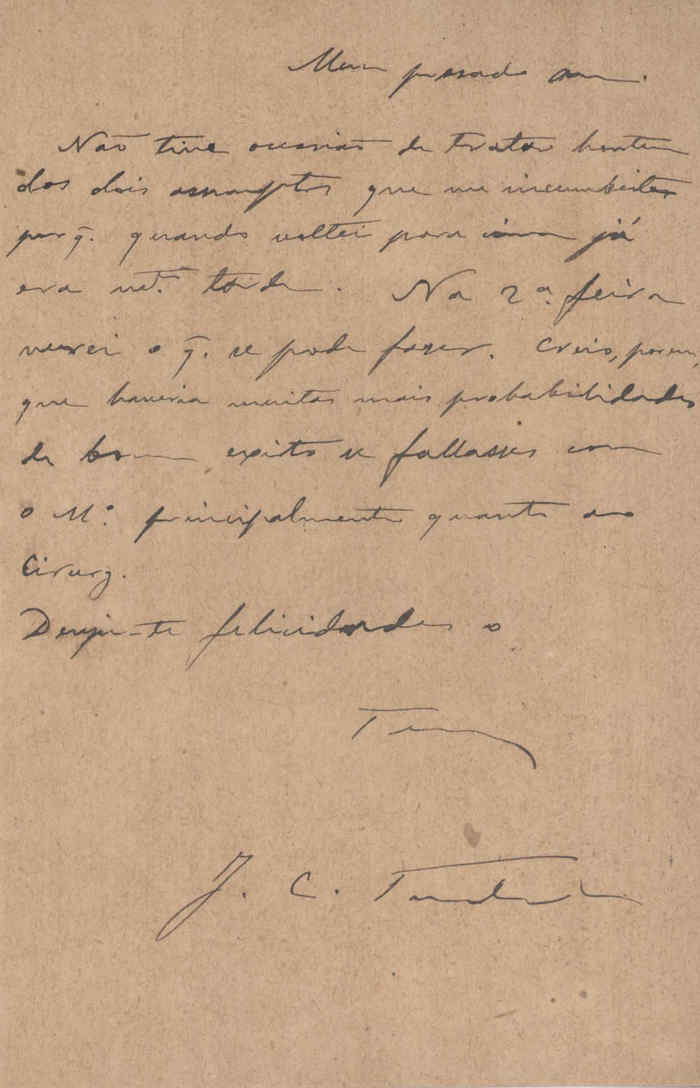 Meu presado
Não tive occasião de tratar hontem
dos dois assumptos que me incumbistes
porq. quando voltei para casa já
era mt.º tarde. Na 2ª feira
verei o q. se pode fazer. Creio, porem,
que haveria muitas mais probabilidades
de bom exito se fallasses com
o M.º principalmente quanto ao
Cirurg.
Deseja-te felicidades o
Teu
J. C.